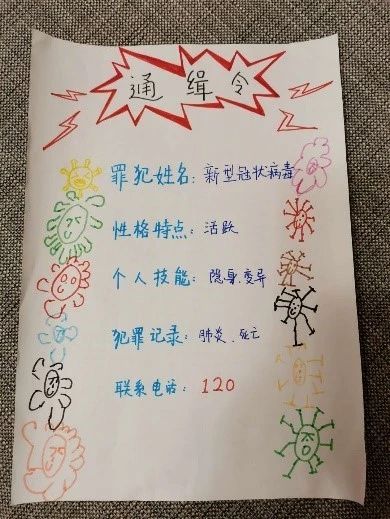 通缉令
罪犯姓名：新型冠状病毒
性格特点：活跃
个人技能：隐身、变异
犯罪记录：肺炎、死亡
联系电话：120